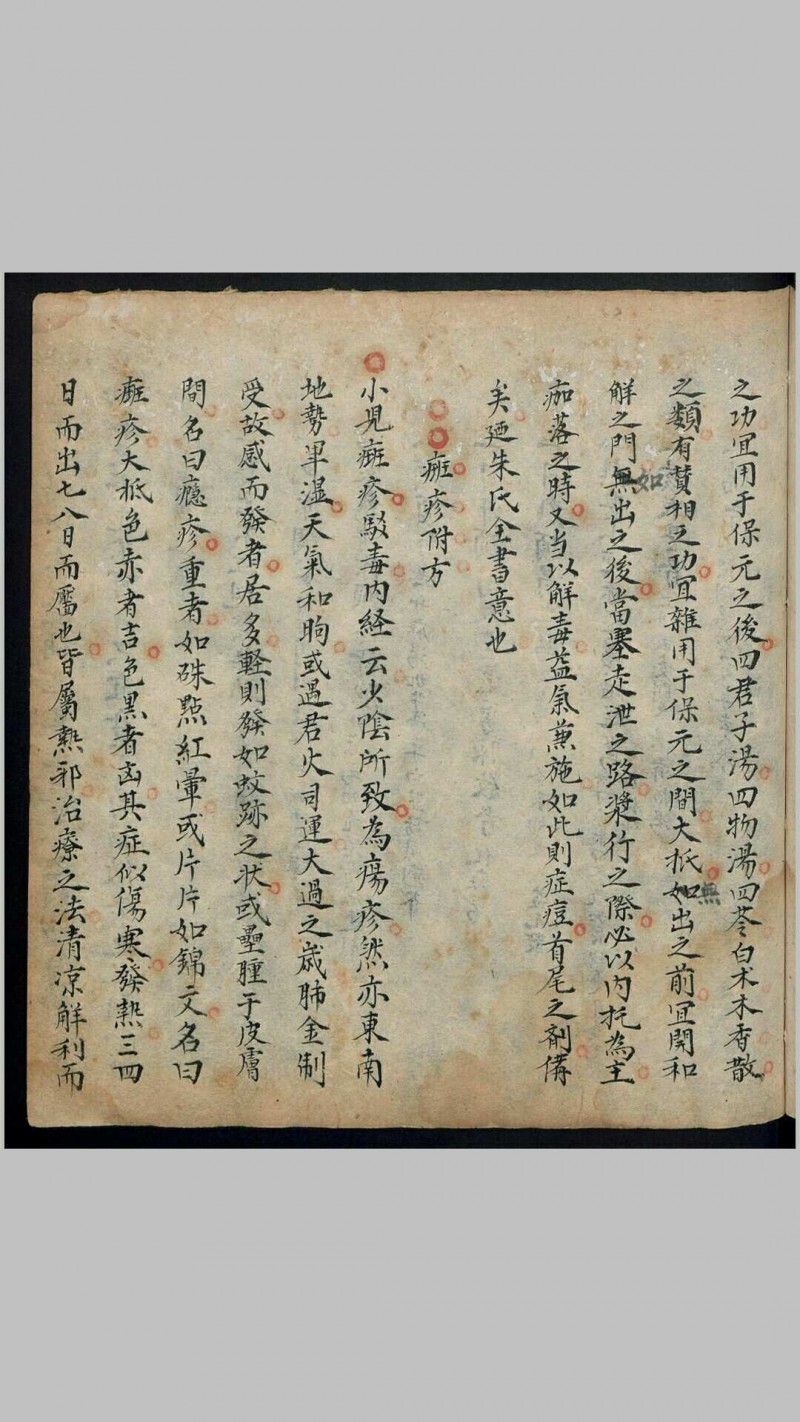 之功宜用于保元之後四君子湯四物湯四苓白术木香散
之類有賛相之功宜雜用于保元之間大抵如無出之前宜開和
解之門無如出之後當塞走泄之路漿行之際必以内托為主
痂落之時又当以解毒益氣兼施如此則症痘首尾之剤備
矣廼朱氏全書意也
癍疹附方
小児癍疹駁毒内経云少陰所致為瘍疹然亦東南
地勢卑湿天氣和昫或遇君火司運大過之歳肺金制
受故感而發者居多軽則發如蚊跡之状或壘腫于皮膚
間名曰癮疹重者如硃點紅暈或片片如錦文名曰
癍疹大抵色赤者吉色黒者凶其症似傷寒發熱三四
日而出七八日而靥也皆屬熱邪治療之法清凉解利而